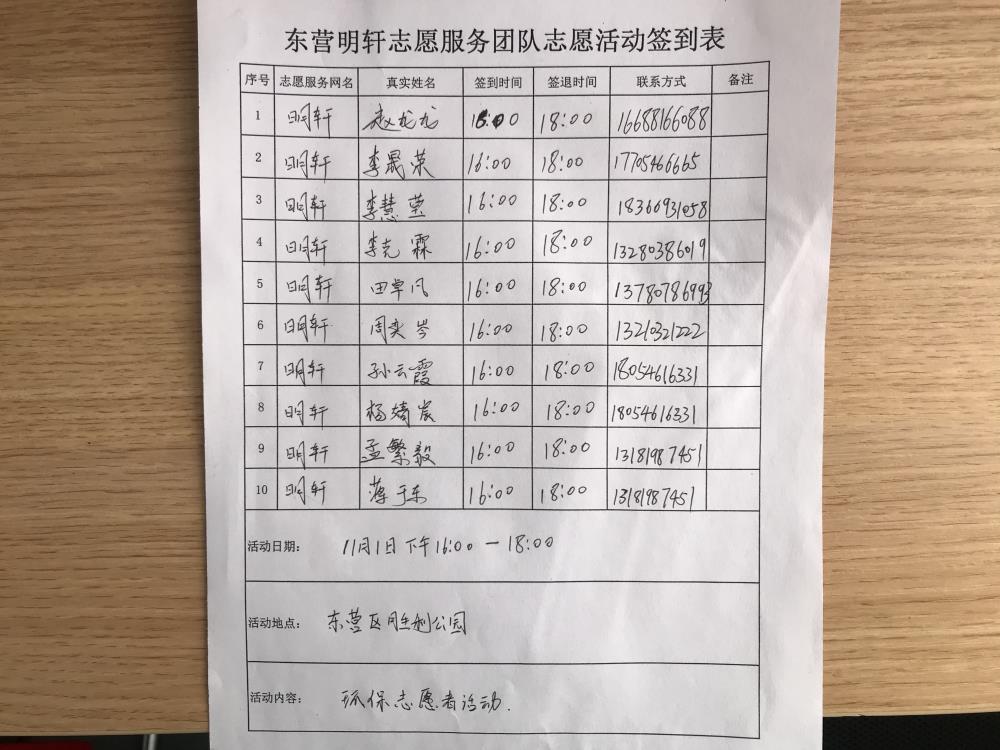 东营明轩志愿服务团队志愿活动签到表
序号 志愿服务网名 真实姓名 签到时间 签退时间 联系方式 备注
1 明轩 赵龙龙 16:00 18:00 16688166088
2 明轩 李晟荣 16:00 18:00 17705466665
3 明轩 李慧莹 16:00 18:00 18366931058
4 明轩 李克霖 16:00 18:00 13280386019
5 明轩 田卓凡 16:00 18:00 13780786993
6 明轩 周奕岑 16:00 18:00 13210321222
7 明轩 孙云霞 16:00 18:00 18054616331
8 明轩 杨婧宸 16:00 18:00 18054616331
9 明轩 孟繁毅 16:00 18:00 13181987451
10 明轩 于东 16:00 18:00 13181987451
活动日期： 11月1日下午16:00 — 18:00
活动地点： 东营区胜利公园
活动内容： 环保志愿者活动.